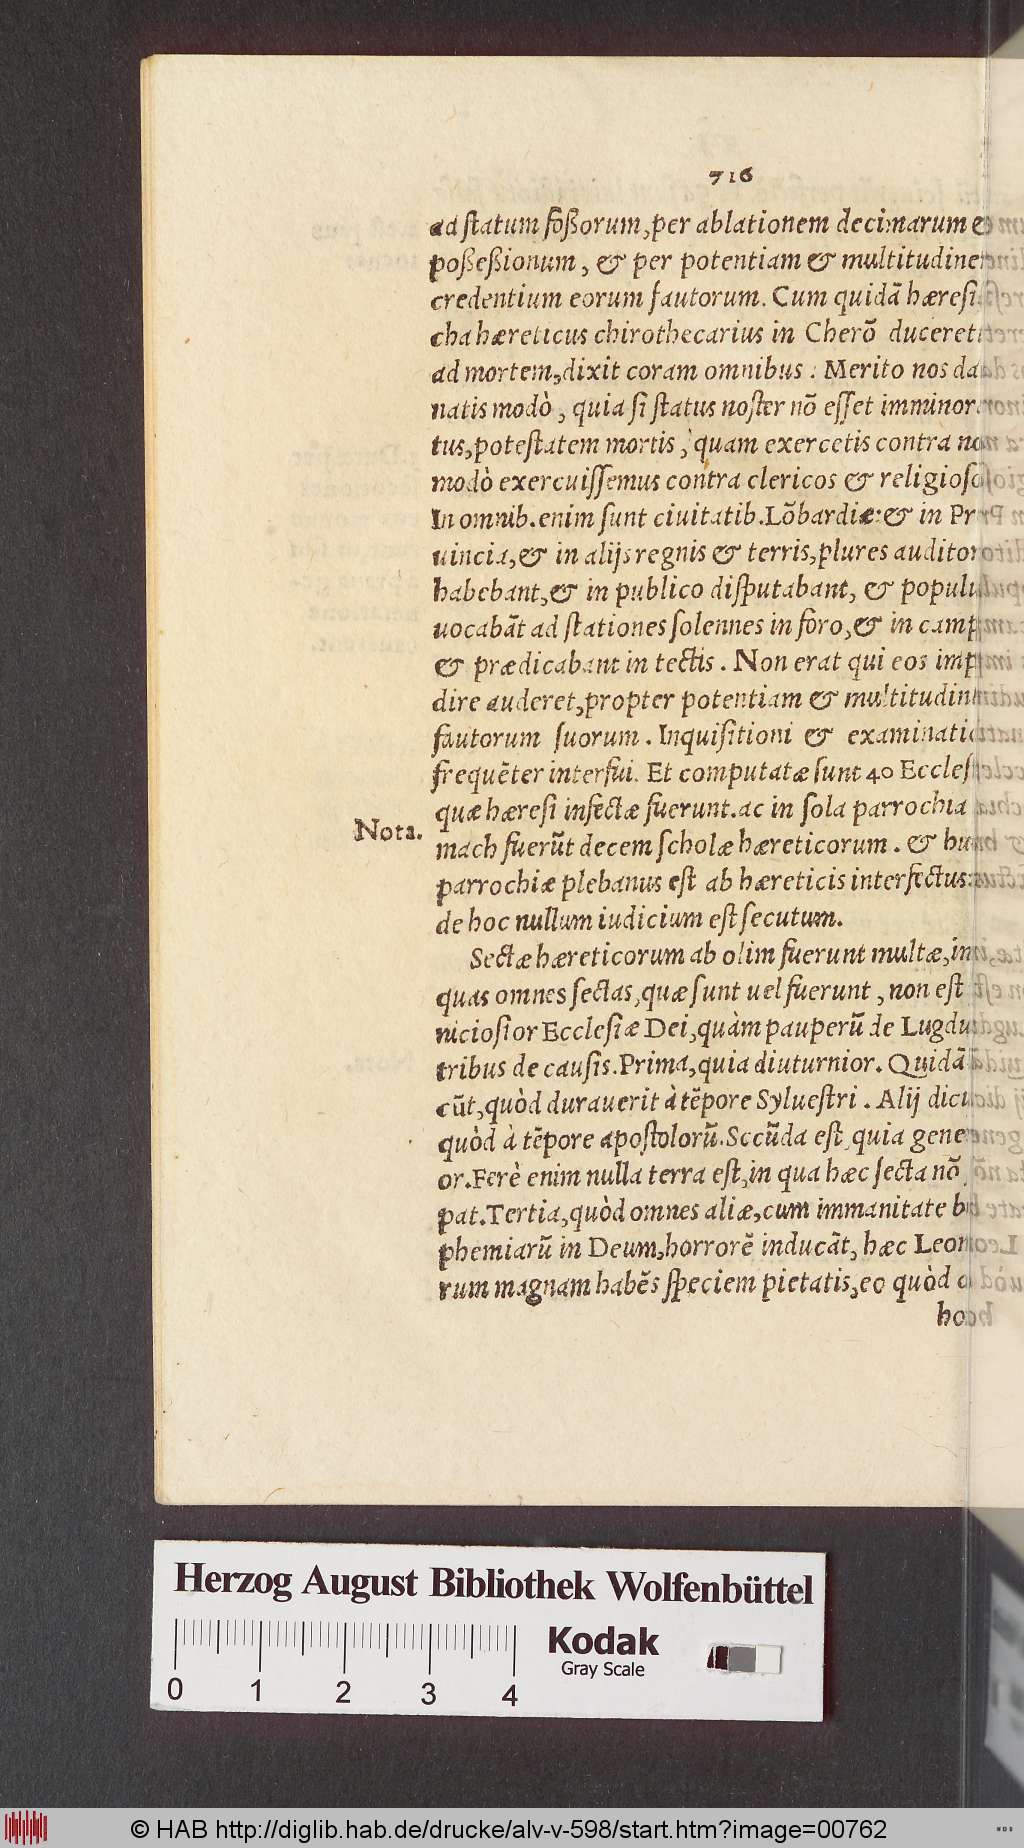 716
ad ſtatum foßorum, per ablationem decimarum &
poßeßionum, & per potentiam & multitudine
credentium eorum fautorum. Cum quidā hæreſi
cha hæreticus chirothecarius in Cherō duceret
ad mortem, dixit coram omnibus: Merito nos da
natis modò, quia ſi ſtatus noſter nō eſſet imminor
tus, poteſtatem mortis, quam exercetis contra no
modò exercuiſſemus contra clericos & religioſo
In omnib. enim ſunt ciuitatib. Lōbardiæ: & in Pr
uincia, & in alijs regnis & terris, plures auditor
habebant, & in publico diſputabant, & populu
uocabāt ad ſtationes ſolennes in foro, & in camp
& prædicabant in tectis. Non erat qui eos imp
dire auderet, propter potentiam & multitudin
fautorum ſuorum. Inquiſitioni & examinatio
frequēter interfui. Et computatæ ſunt 40 Eccleſ
quæ hæreſi infectæ fuerunt. ac in ſola parrochia
Nota.
mach fuerūt decem ſcholæ hæreticorum. & hu
parrochiæ plebanus eſt ab hæreticis interfectus:
de hoc nullum iudicium eſt ſecutum.
Sectæ hæreticorum ab olim fuerunt multæ, in
quas omnes ſectas, quæ ſunt uel fuerunt, non eſt
nicioſior Eccleſiæ Dei, quàm pauperū de Lugdu
tribus de cauſis. Prima, quia diuturnior. Quidā
cūt, quòd durauerit à tēpore Sylueſtri. Alij dicu
quòd à tēpore apoſtolorū. Secūda eſt, quia gene
or. Ferè enim nulla terra eſt, in qua hæc ſecta nō
pat. Tertia, quòd omnes aliæ, cum immanitate b
phemiarū in Deum, horrorē inducāt, hæc Leon
rum magnam habēs ſpeciem pietatis, eo quòd c
ho
Herzog August Bibliothek Wolfenbüttel
Kodak
Gray Scale
0 1 2 3 4
© HAB http://diglib.hab.de/drucke/alv-v-598/start.htm?image=00762